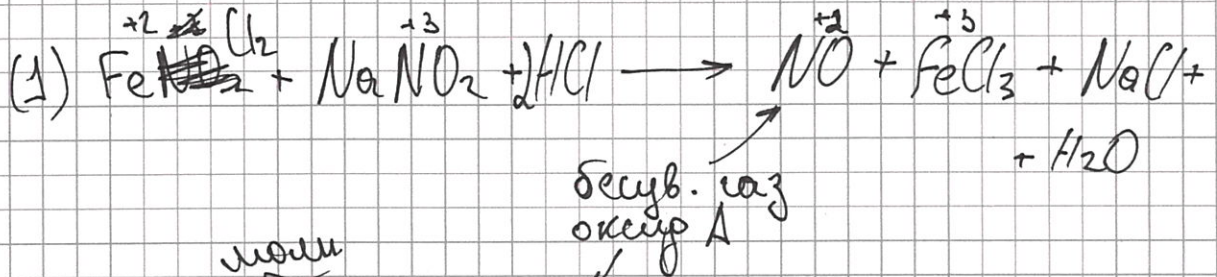 +2 +3 +2 +3
(1) FeCl₂ + NaNO₂ + 2HCl → NO + FeCl₃ + NaCl +
+ H₂O
бесцв. газ
оксид А
моли